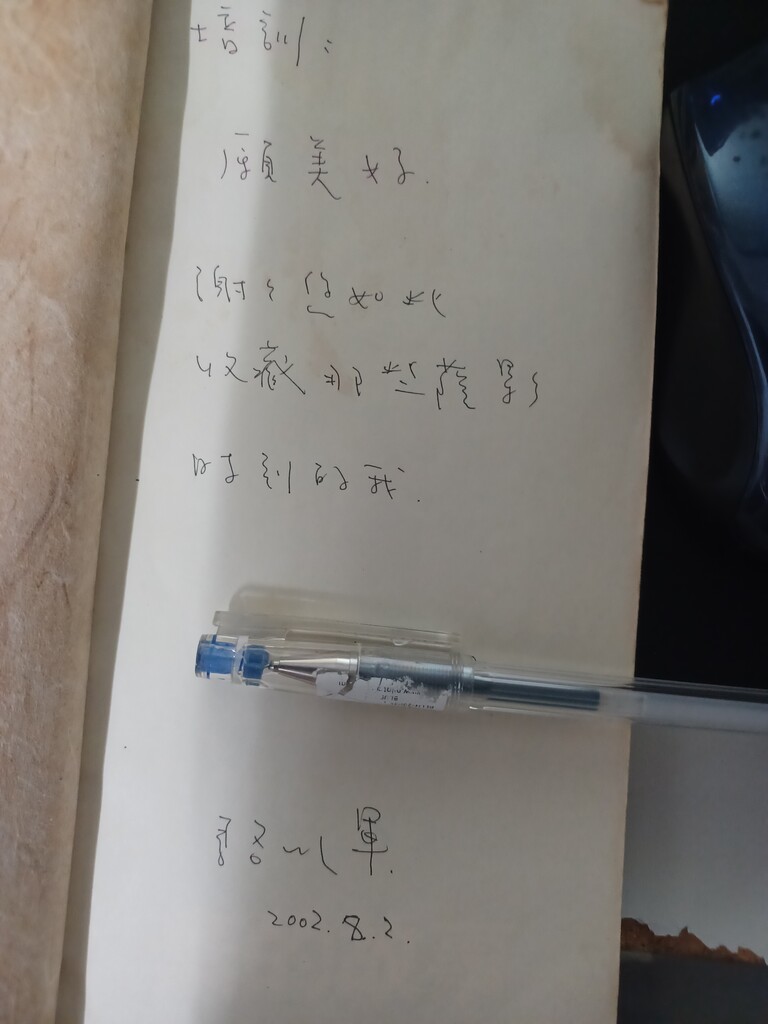 培訓：
願美好.
謝謝您如此
收藏那些蔭影
時刻的我.
駱以軍.
2002.8.2.